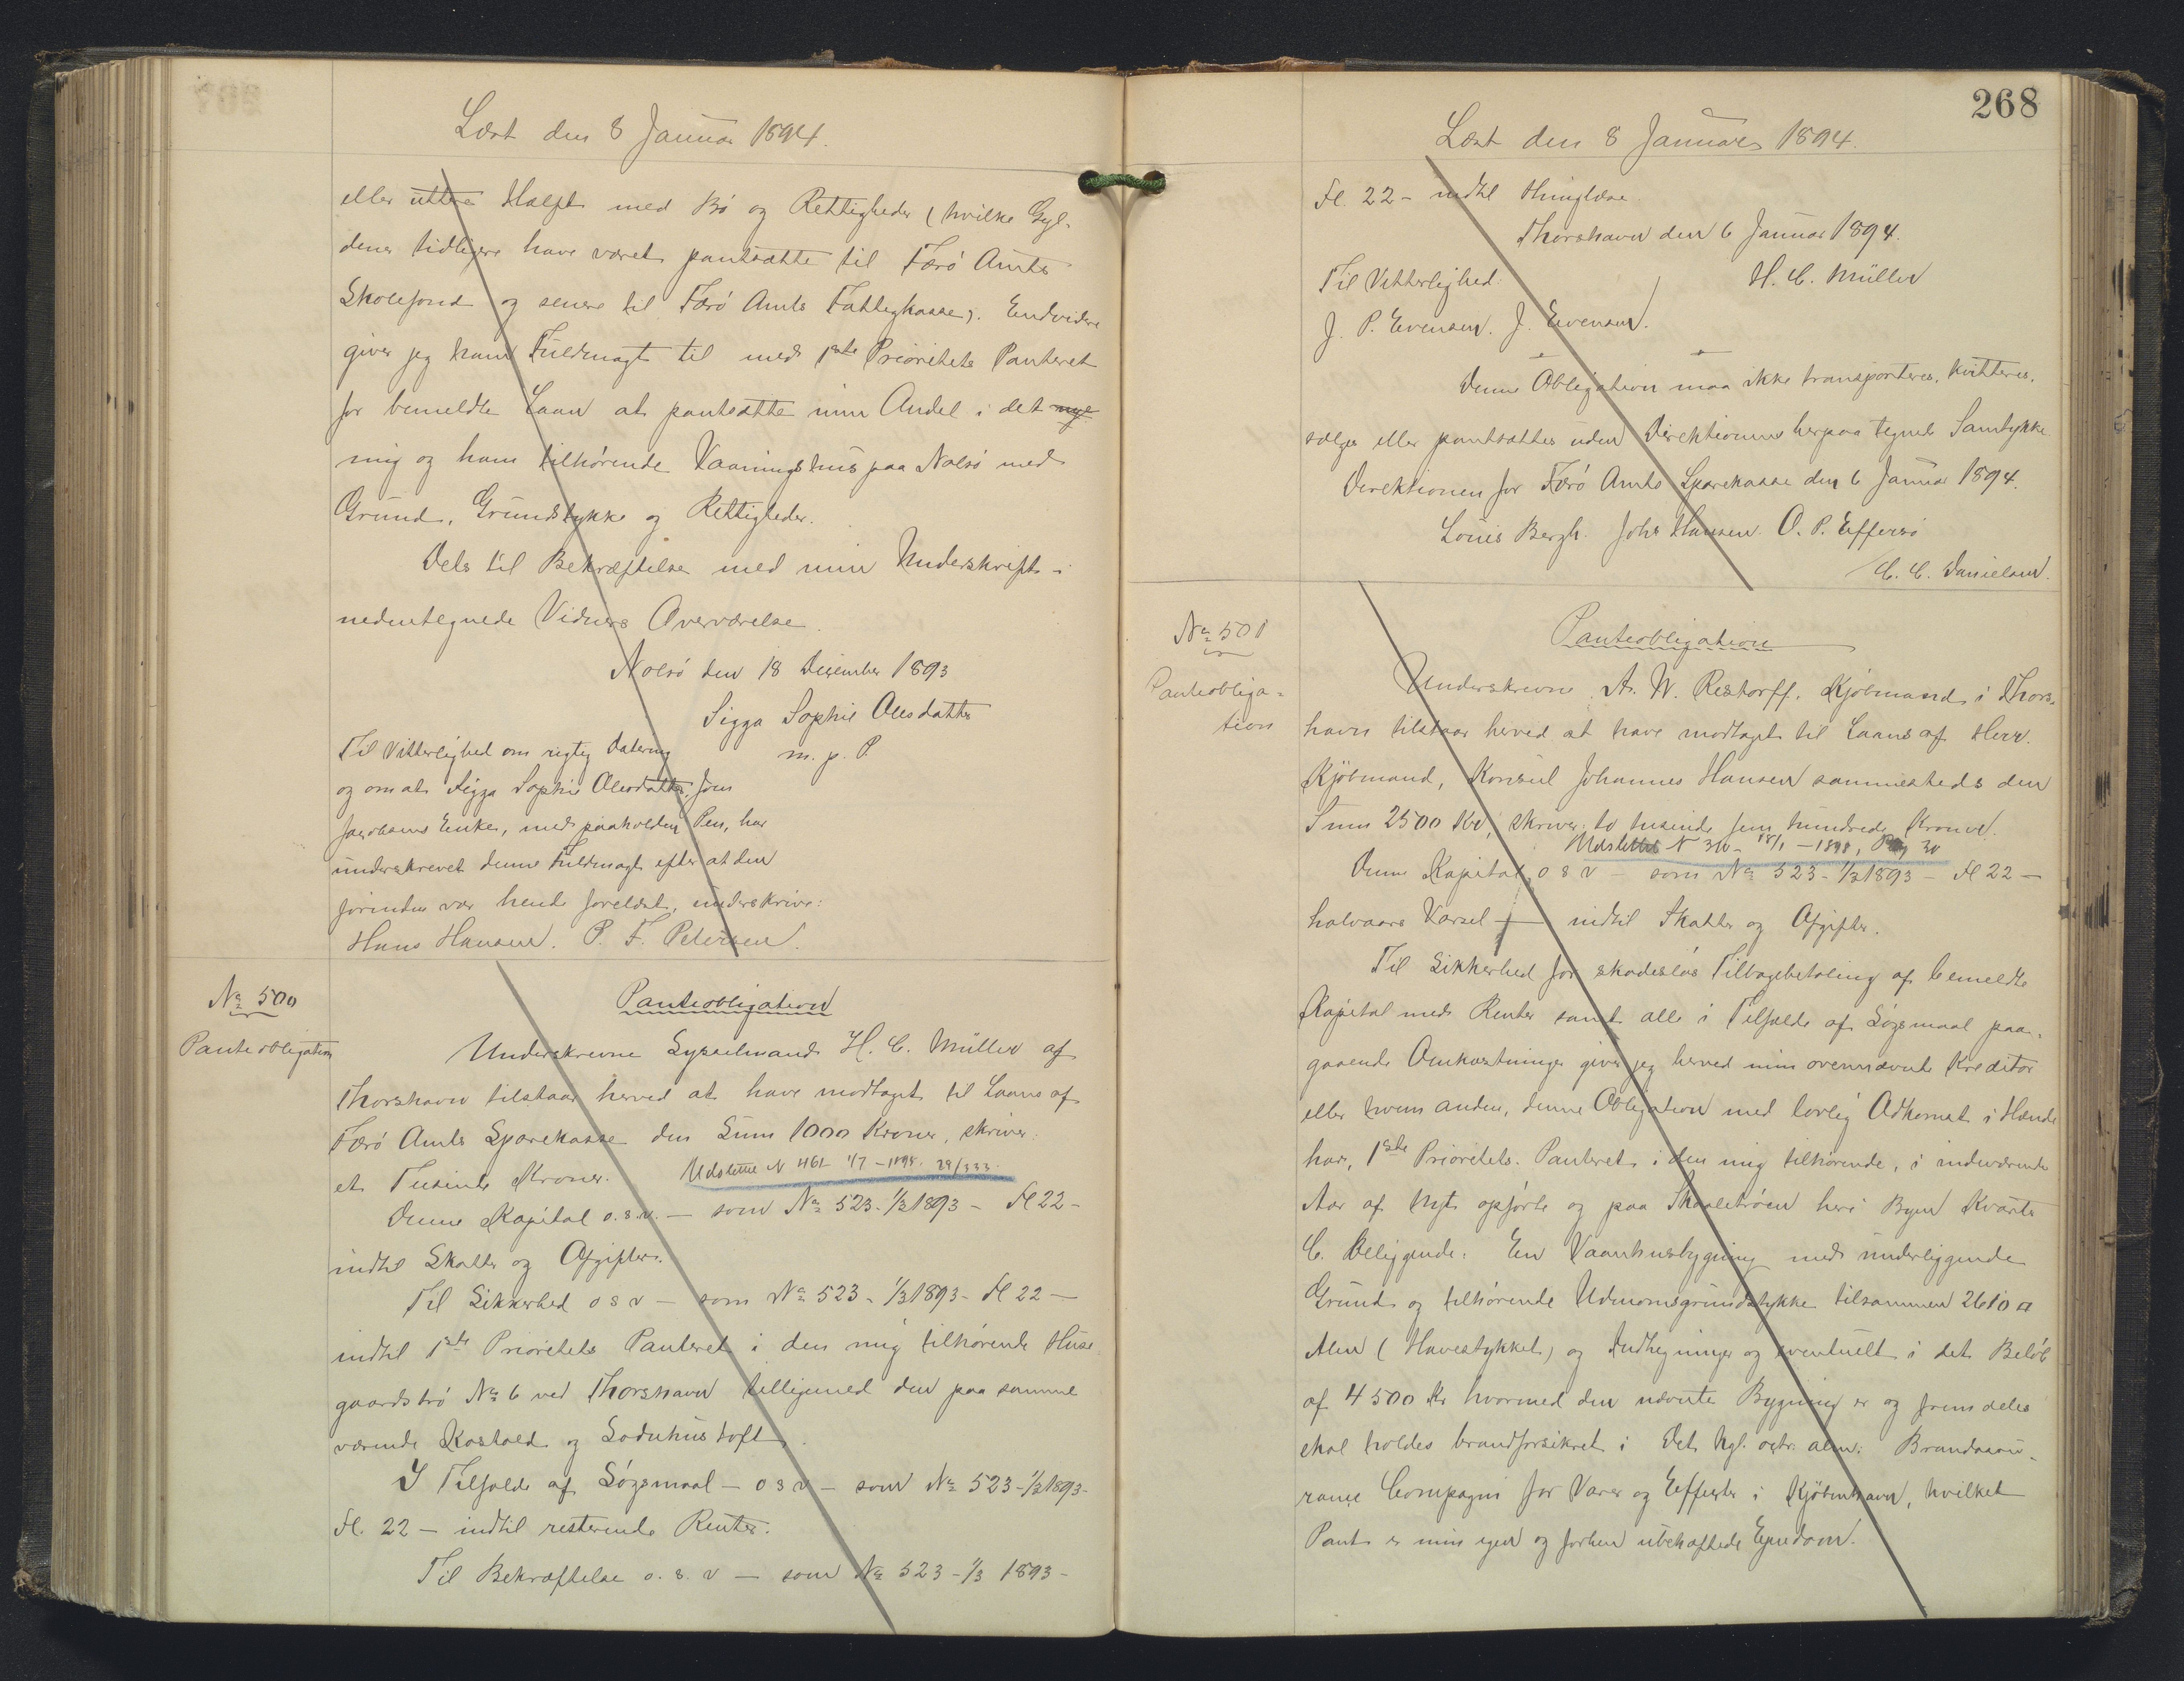 Læst den 8 Januar 1894.
eller uttere Hælft med Bö og Rettigheder (hvilke Gyl-
dener tidligere have været pantsatte til Færö Amts
Skolefond og senere til Færö Amts Fattigkasse). Endvidere
giver jeg ham Fuldmagt til med 1ste Prioritets Panteret
for bemeldte Laan at pantsætte min Andel i det nye
mig og ham tilhörende Vaaningshus paa Nolsö med
Grund, Grundstykke og Rettigheder.
Dets til Bekræftelse med min Underskrift i
nedentegnede Vidners Overværelse.
Nolsö den 18 December 1893
Sigga Sophie Olesdatter
m. p. P
Til Vitterlighed om rigtig Datering
og om at Sigga Sophie Olesdatter, Jens
Jacobsens Enke, med paaholden Pen, har
underskrevet denne Fuldmagt efter at den
forinden var hende forelæst, underskrive:
Hans Hansen. P. F. Petersen.
No 500
Panteobligation
Panteobligation
Underskrevne Sysselmand H. C. Müller af
Thorshavn tilstaar herved at have modtaget til Laans af
Færö Amts Sparekasse den Sum 1000 Kroner, skriver:
et Tusinde Kroner.
Udslettet N 461 1/7 - 1898. 29/333.
Denne Kapital o.s.v. — som No 523 - 1/3 1893 - Fl 22 -
indtil Skatter og Afgifter.
Til Sikkerhed o s v — som No 523 - 1/3 1893 - Fl 22 —
indtil 1ste Prioritets Panteret i den mig tilhörende Huse
gaardströ No 6 ved Thorshavn tilligemed den paa samme
værende Kostald og Soduhustoft.
I Tilfælde af Sögsmaal — o s v — som No 523 - 1/3 1893 -
Fl. 22 — indtil resterende Renter.
Til Bekræftelse o. s. v — som No 523 - 1/3 1893 -
268
Læst den 8 Januar 1894.
Fl. 22 - indtil thinglæse.
Thorshavn den 6 Januar 1894.
Til Vitterlighed:
H. C. Müller
J. P. Evensen. J. Evensen.
Denne Obligation maa ikke transporteres, kvitteres,
sælges eller pantsættes uden Direktionens herpaa tegnede Samtykke.
Direktionen for Færö Amts Sparekasse den 6 Januar 1894.
Louis Bergh. Johs Hansen. O. P. Effersö
C. C. Danielsen.
No 501
Panteobliga-
tion
Panteobligation
Underskrevne A. W. Restorff, Kjöbmand i Thors-
havn tilstaar herved at have modtaget til Laans af Herr.
Kjöbmand, Konsul Johannes Hansen sammesteds den
Sum 2500 Kr, skriver: to tusinde fem hundrede Kroner.
Udslettet N 310 - 18/1 - 1898, 30
Denne Kapital, o s v — som No 523 - 1/3 1893 — Fl 22 —
halvaars Varsel — indtil Skatter og Afgifter.
Til Sikkerhed for skadeslös Tilbagebetaling af bemeldte
Kapital med Renter samt alle i Tilfælde af Sögsmaal paa-
gaaende Omkostninger giver jeg herved min ovennævnte Kreditor
eller hvem anden, denne Obligation med lovlig Adkomst i Hænde
har, 1ste Prioritets Panteret i den mig tilhörende, i indeværende
Aar af Nyt opförte og paa Skaaletröen her i Byen Kvarter
C. Beliggende: En Vaanhusbygning med underliggende
Grund og tilhörende Udmomsgrundstykke tilsammen 2610 □
Alen (Havestykket) og Indhegninger og eventuelt i det Belöb
af 4500 Kr hvormed den nævnte Bygning er og fremdeles
skal holdes brandforsikret i Det kgl. octr. alm: Brandassu-
rance Compagni for Varer og Effecter i Kjöbenhavn, hvilket
Pant er min egen og forhen ubehæftede Ejendom.